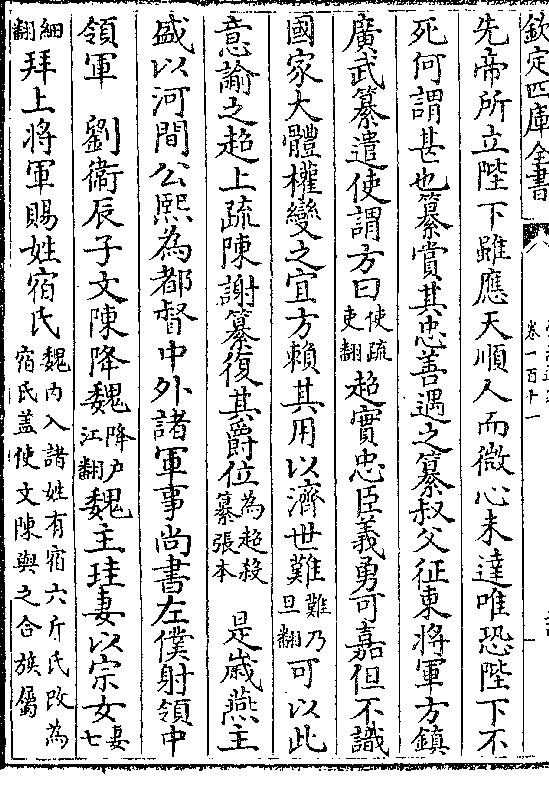 欽定四庫全書
卷一百十一
先帝所立陛下雖應天順人而微心未達唯恐陛下不
死何謂甚也纂賞其忠善遇之纂叔父征東將軍方鎮
廣武纂遣使謂方曰使疏吏翻超實忠臣義勇可嘉但不識
國家大體權變之宜方賴其用以濟世難難乃旦翻可以此
意諭之超上疏陳謝纂復其爵位為超殺纂張本 是歲燕主
盛以河間公熙為都督中外諸軍事尚書左僕射領中
領軍 劉衞辰子文陳降魏降户江翻魏主珪妻以宗女妻七
細翻拜上將軍賜姓宿氏魏内入諸姓有宿六斤氏改為宿氏盖使文陳與之合族屬